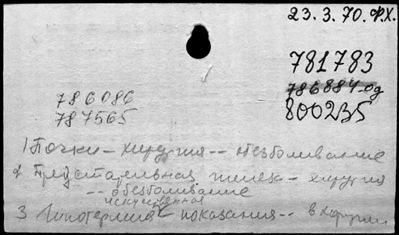 23.3.70. Ф.Х.
781783
786884-од
800235
786086
787565
1) Почки – хирургия -- обезболивание
2 Предстательная желез. – хирургия
-- обезболивание
искусственная
3 Гипотермия – показания -- в хирургии